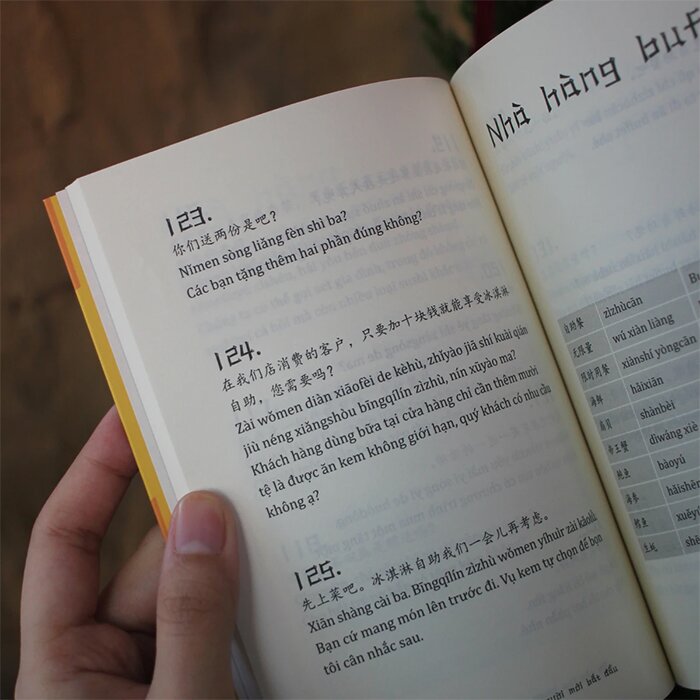 123.
你们送两份是吧？
Nǐmen sòng liǎng fèn shì ba?
Các bạn tặng thêm hai phần đúng không?
124.
在我们店消费的客户，只要加十块钱就能享受冰淇淋
自助，您需要吗？
Zài wǒmen diàn xiāofèi de kèhù, zhǐyào jiā shí kuài qián
jiù néng xiǎngshòu bīngqílín zìzhù, nín xūyào ma?
Khách hàng dùng bữa tại cửa hàng chỉ cần thêm mười
tệ là được ăn kem không giới hạn, quý khách có nhu cầu
không ạ?
125.
先上菜吧。冰淇淋自助我们一会儿再考虑。
Xiān shàng cài ba. Bīngqílín zìzhù wǒmen yīhuìr zài kǎolǜ.
Bạn cứ mang món lên trước đi. Vụ kem tự chọn để bọn
tôi cân nhắc sau.
người mới bắt đầu
Nhà hàng
自助餐 zìzhùcān
无限量 wú xiàn liàng
限时用餐 xiànshí yòngcān
海鲜 hǎixiān
扇贝 shànbèi
帝王蟹 dìwáng xiè
鲍鱼 bàoyú
海参
鳕鱼